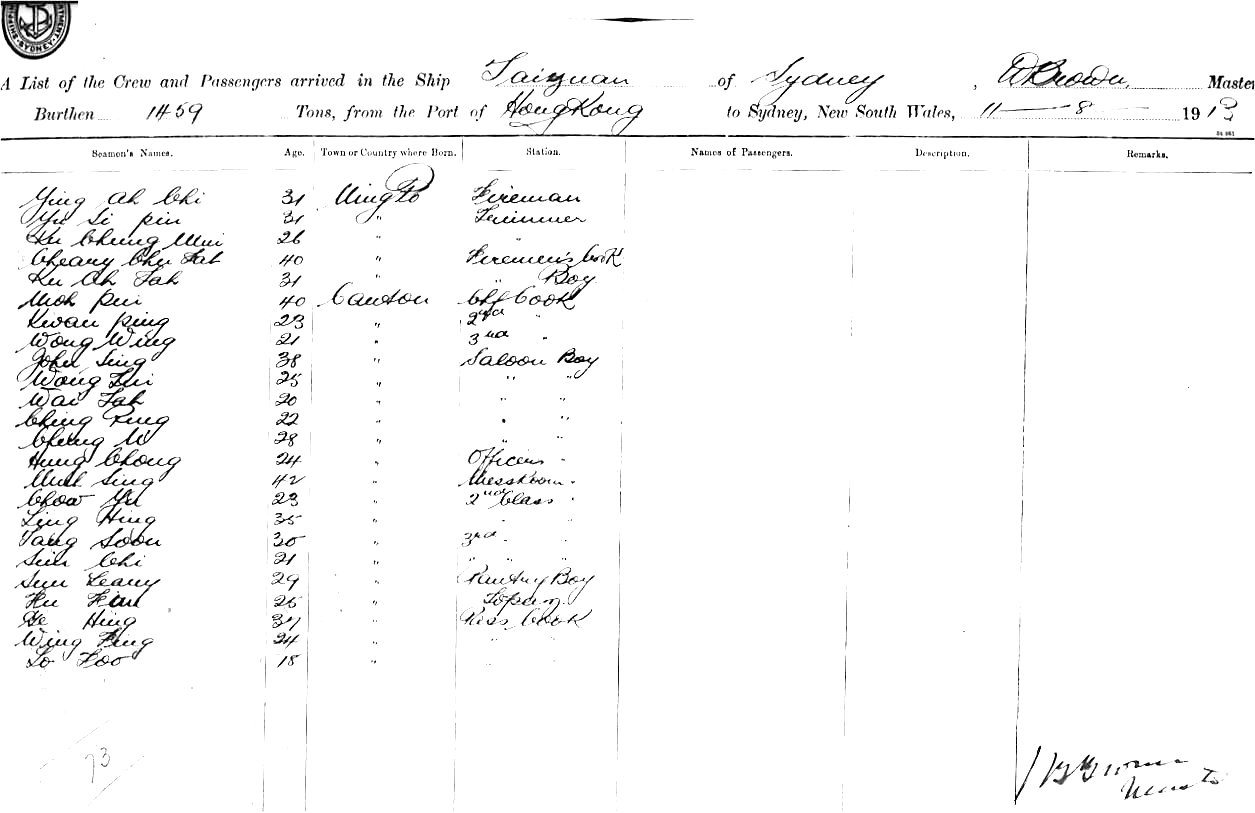 SYDNEY
A List of the Crew and Passengers arrived in the Ship Taiyuan of Sydney, W Brown, Master
Burthen 1459 Tons, from the Port of HongKong to Sydney, New South Wales, 11 - 8 1913
Seamen's Names. Age. Town or Country where Born. Station. Names of Passengers. Description. Remarks.
Ying Ah Chi 31 NingPo Fireman
Yu Si Pin 31 " Trimmer
Ku Chung Mui 26 " "
Cheang Chu Fah 40 " Firemen's Cook
Ku Ah Fah 31 " " Boy
Moh Pui 40 Canton Chf Cook
Kwan Ping 23 " 2nd "
Wong Wing 21 " 3rd "
John Sing 38 " Saloon Boy
Wong 25 " " "
Wai Fah 20 " " "
Ching Ping 22 " " "
Cheung 28 " " "
Hung Chong 24 " Officers "
Sing 42 " Messroom "
Chow Yu 23 " 2nd Class "
Ling Hing 35 " "
Tang Soon 30 " 3rd " "
Chi 21 " " " "
Leang 29 " Pantry Boy
25 "
Hing 37 " Cook
Wing 24 " "
Lo Foo 18 " "
73